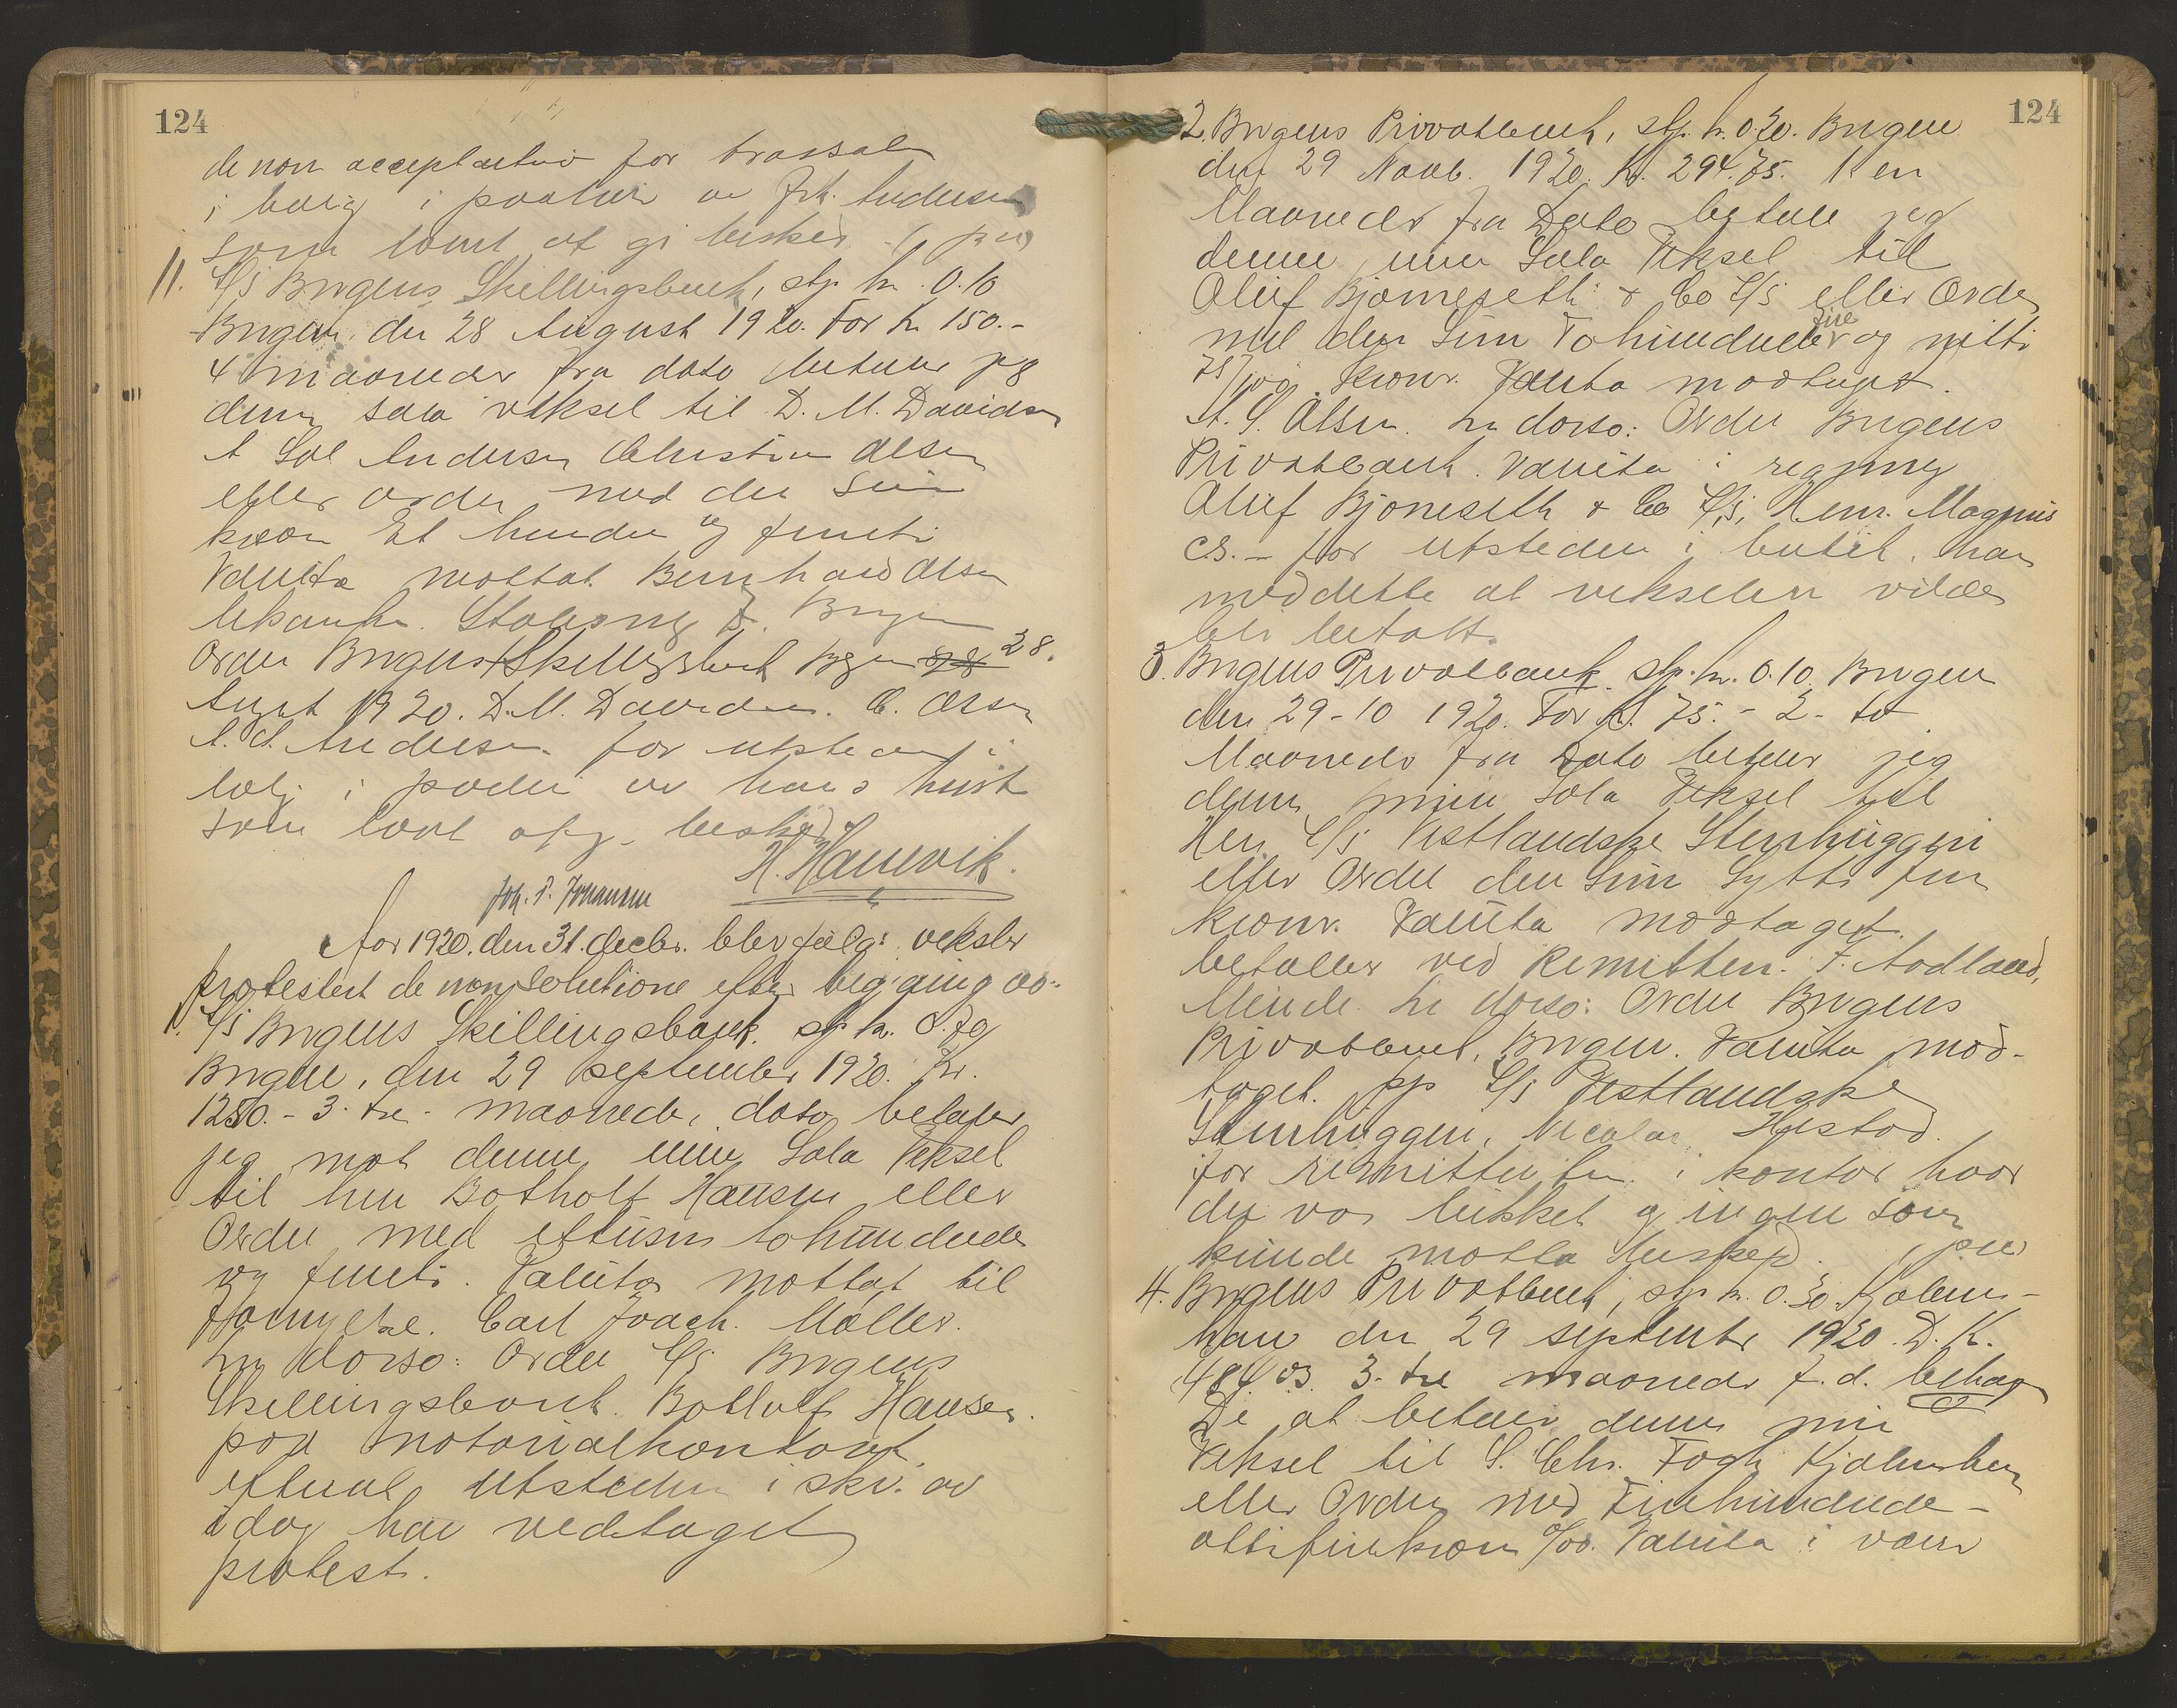 124
de non acceptatione for trassaten
i bolig i paahør av Frk. Andersen
som lovet at gi besked
11. A/S Bergens Skillingsbank, stp. kr. 0.10
Bergen den 28 August 1920. For kr 150.-
4 maaneder fra dato betaler jeg
denne sola veksel til D. M. Davidsen
A Sol Andersen Christian Olsen
eller ordre med den Sum
kroner Et hundre og femti
Valuta mottat. Bernhard Olsen
Ordre Bergens Skillingsbank Bergen 28.
August 1920. D. M. Davidsen. C. Olsen
A. S. Andersen. for utstederen i
bolig i paahør av hans hustru
som lovet at gi besked
H. Hamvik.
Joh. P. Johansen
Aar 1920. den 31. decbr. blev følg: veksler
protestert de non solutione efter begjæring av:
1. A/S Bergens Skillingsbank. stp kr. 0.70
Bergen, den 29 september 1920. Kr.
1250.- 3- tre- maaneder dato betaler
jeg mot denne min Sola Veksel
til herr Botholf Hansen eller
Ordre med ettusen tohundrede
og femti. Valuta mottat til
fornyelse. Carl Joach. Møller.
In dorso: Ordre A/S Bergens
Skillingsbank. Botholf Hansen.
paa notarialkontoret
eftersom utstederen i skr. av
idag har vedtaget
protest.
124
2. Bergens Privatbank, stp. kr. 0.20. Bergen
den 29 Novb. 1920. Kr. 294.75. 1 en
Maaneder fra Dato betaler jeg
denne min Sola Veksel til
Oluf Bjørneseth & Co A/S eller Ordre
med den Sum Tohundrede fire og nitti
75/100 Kroner. Valuta modtaget.
A. S. Olsen. In dorso: Ordre Bergens
Privatbank. Valuta i regning
Oluf Bjørneseth & Co A/S, Henr. Magnus
cs. - for utstederen i butik. han
meddelte at vekselen vilde
bli betalt.
3. Bergens Privatbank. stp. kr. 0.10. Bergen
den 29-10 1920. For Kr. 75.- 2- to
Maaneder fra Dato betaler jeg
denne min Sola Veksel til
Herr A/S Vestlandske Stenhuggeri
eller Ordre den Sum Sytti fem
kroner. Valuta modtaget.
betales ved Remittenten. T. Aadland,
Minde. In dorso: Ordre Bergens
Privatbank, Bergen. Valuta mod-
taget. pp A/S Vestlandske
Stenhuggeri, Nicolai Hustad.
for remittenten i kontor hvor
der var lukket og ingen som
kunde motta besked.
4. Bergens Privatbank, stp. kr. 0.30. Kjøben-
havn den 29 september 1920. D. K.
484.03. 3- tre maaneder f. d. behager
De at betale denne min
Veksel til S. Chr. Fogh Kjøbenhavn
eller Ordre med Firehundrede-
ottifirekroner /00. Valuta i varer